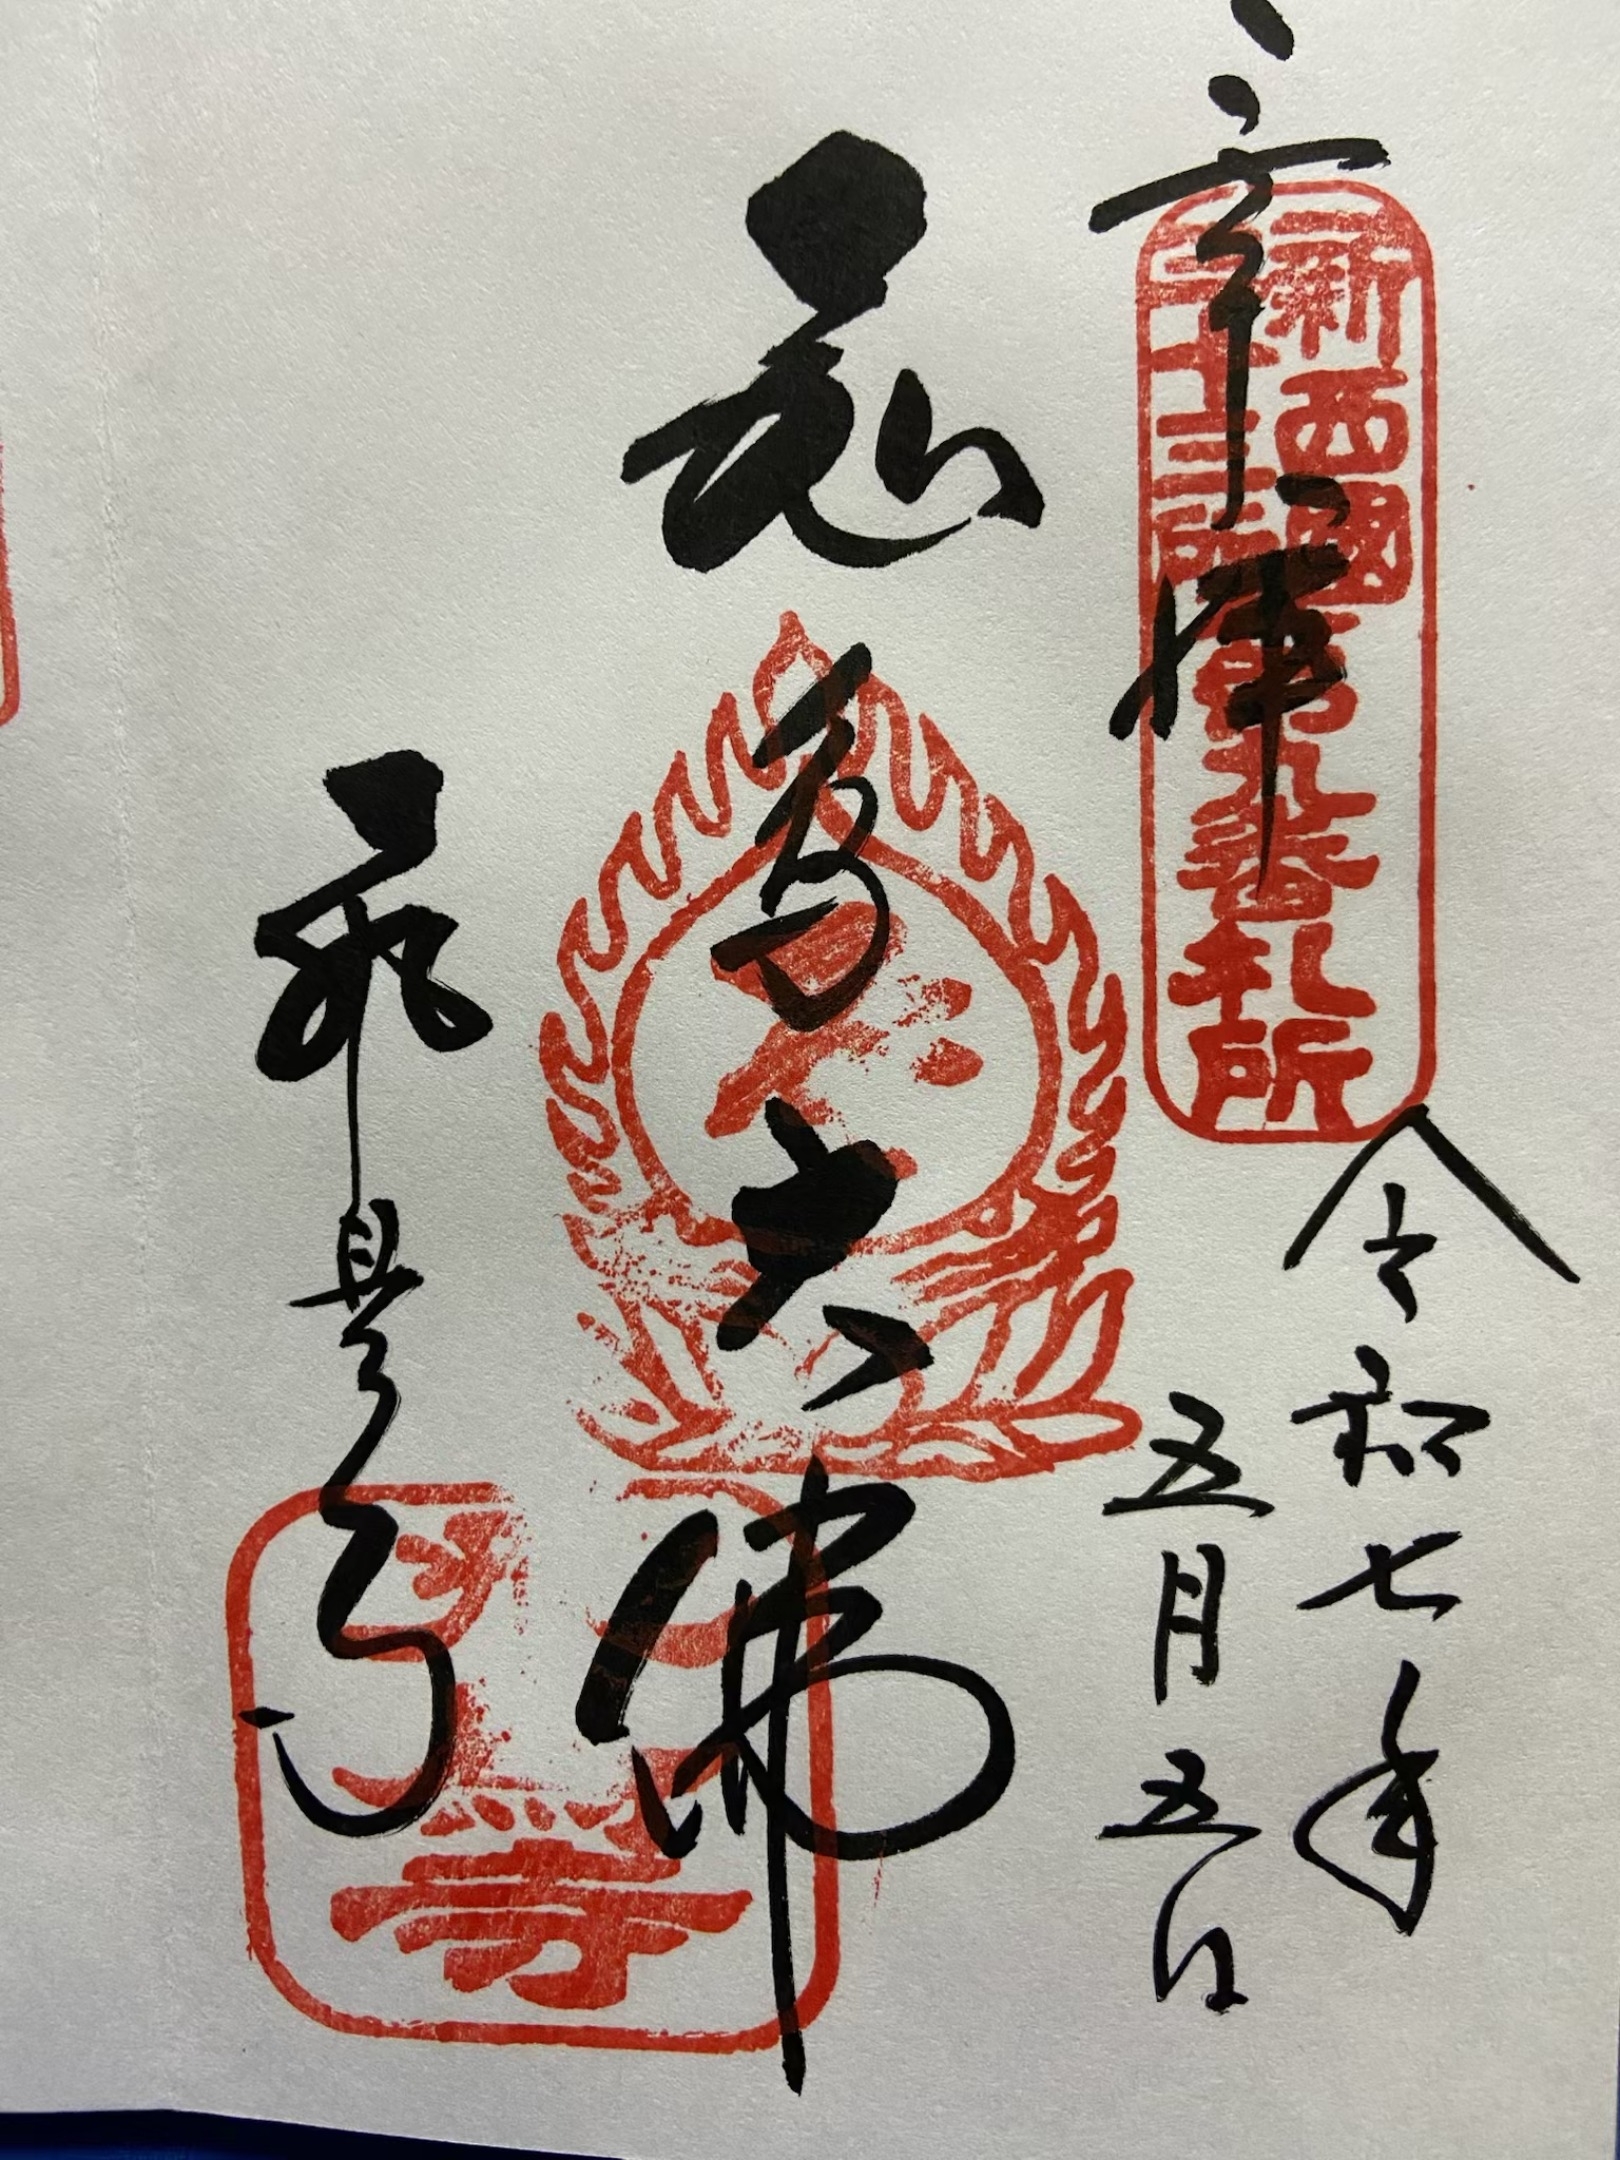 奉拝
新西國
三十三所
第九番札所
令和七年
五月五日
飛鳥大佛
飛鳥寺